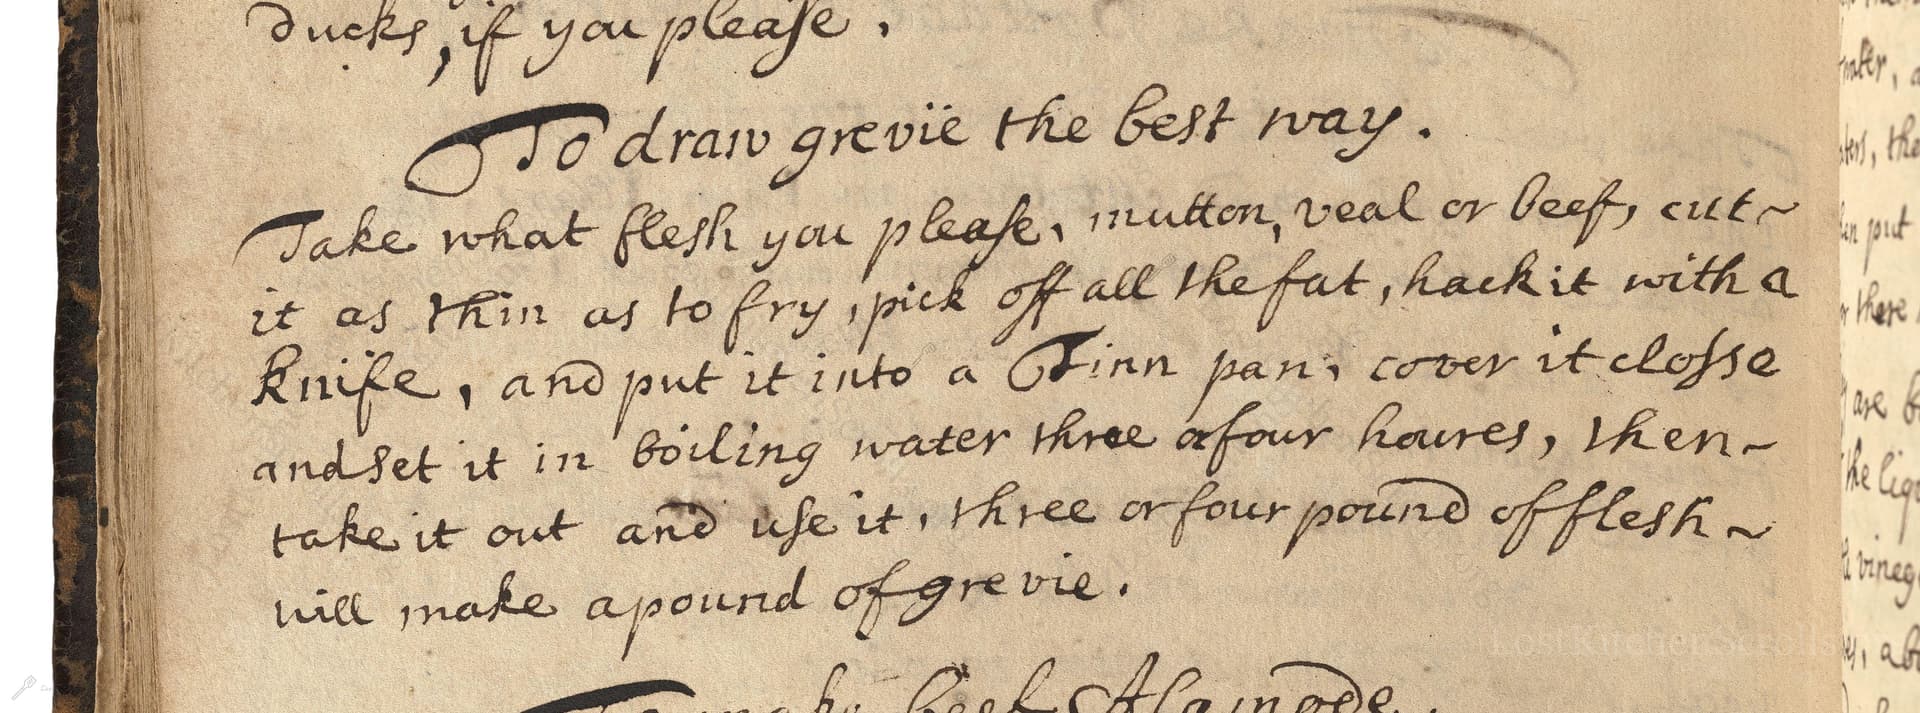 ducks, if you please.
To draw grevïe the best way.
Take what flesh you please, mutton, veal or beef, cut~
it as thin as to fry, pick off all the fat, hack it with a
knife, and put it into a Tinn pan, cover it closse
and set it in boiling water three or four houres, then~
take it out and use it, three or four pound of flesh~
will make a pound of grevie.
To make beef Alamode.
water, 
the
put
there
are
the
LostKitchenScrolls